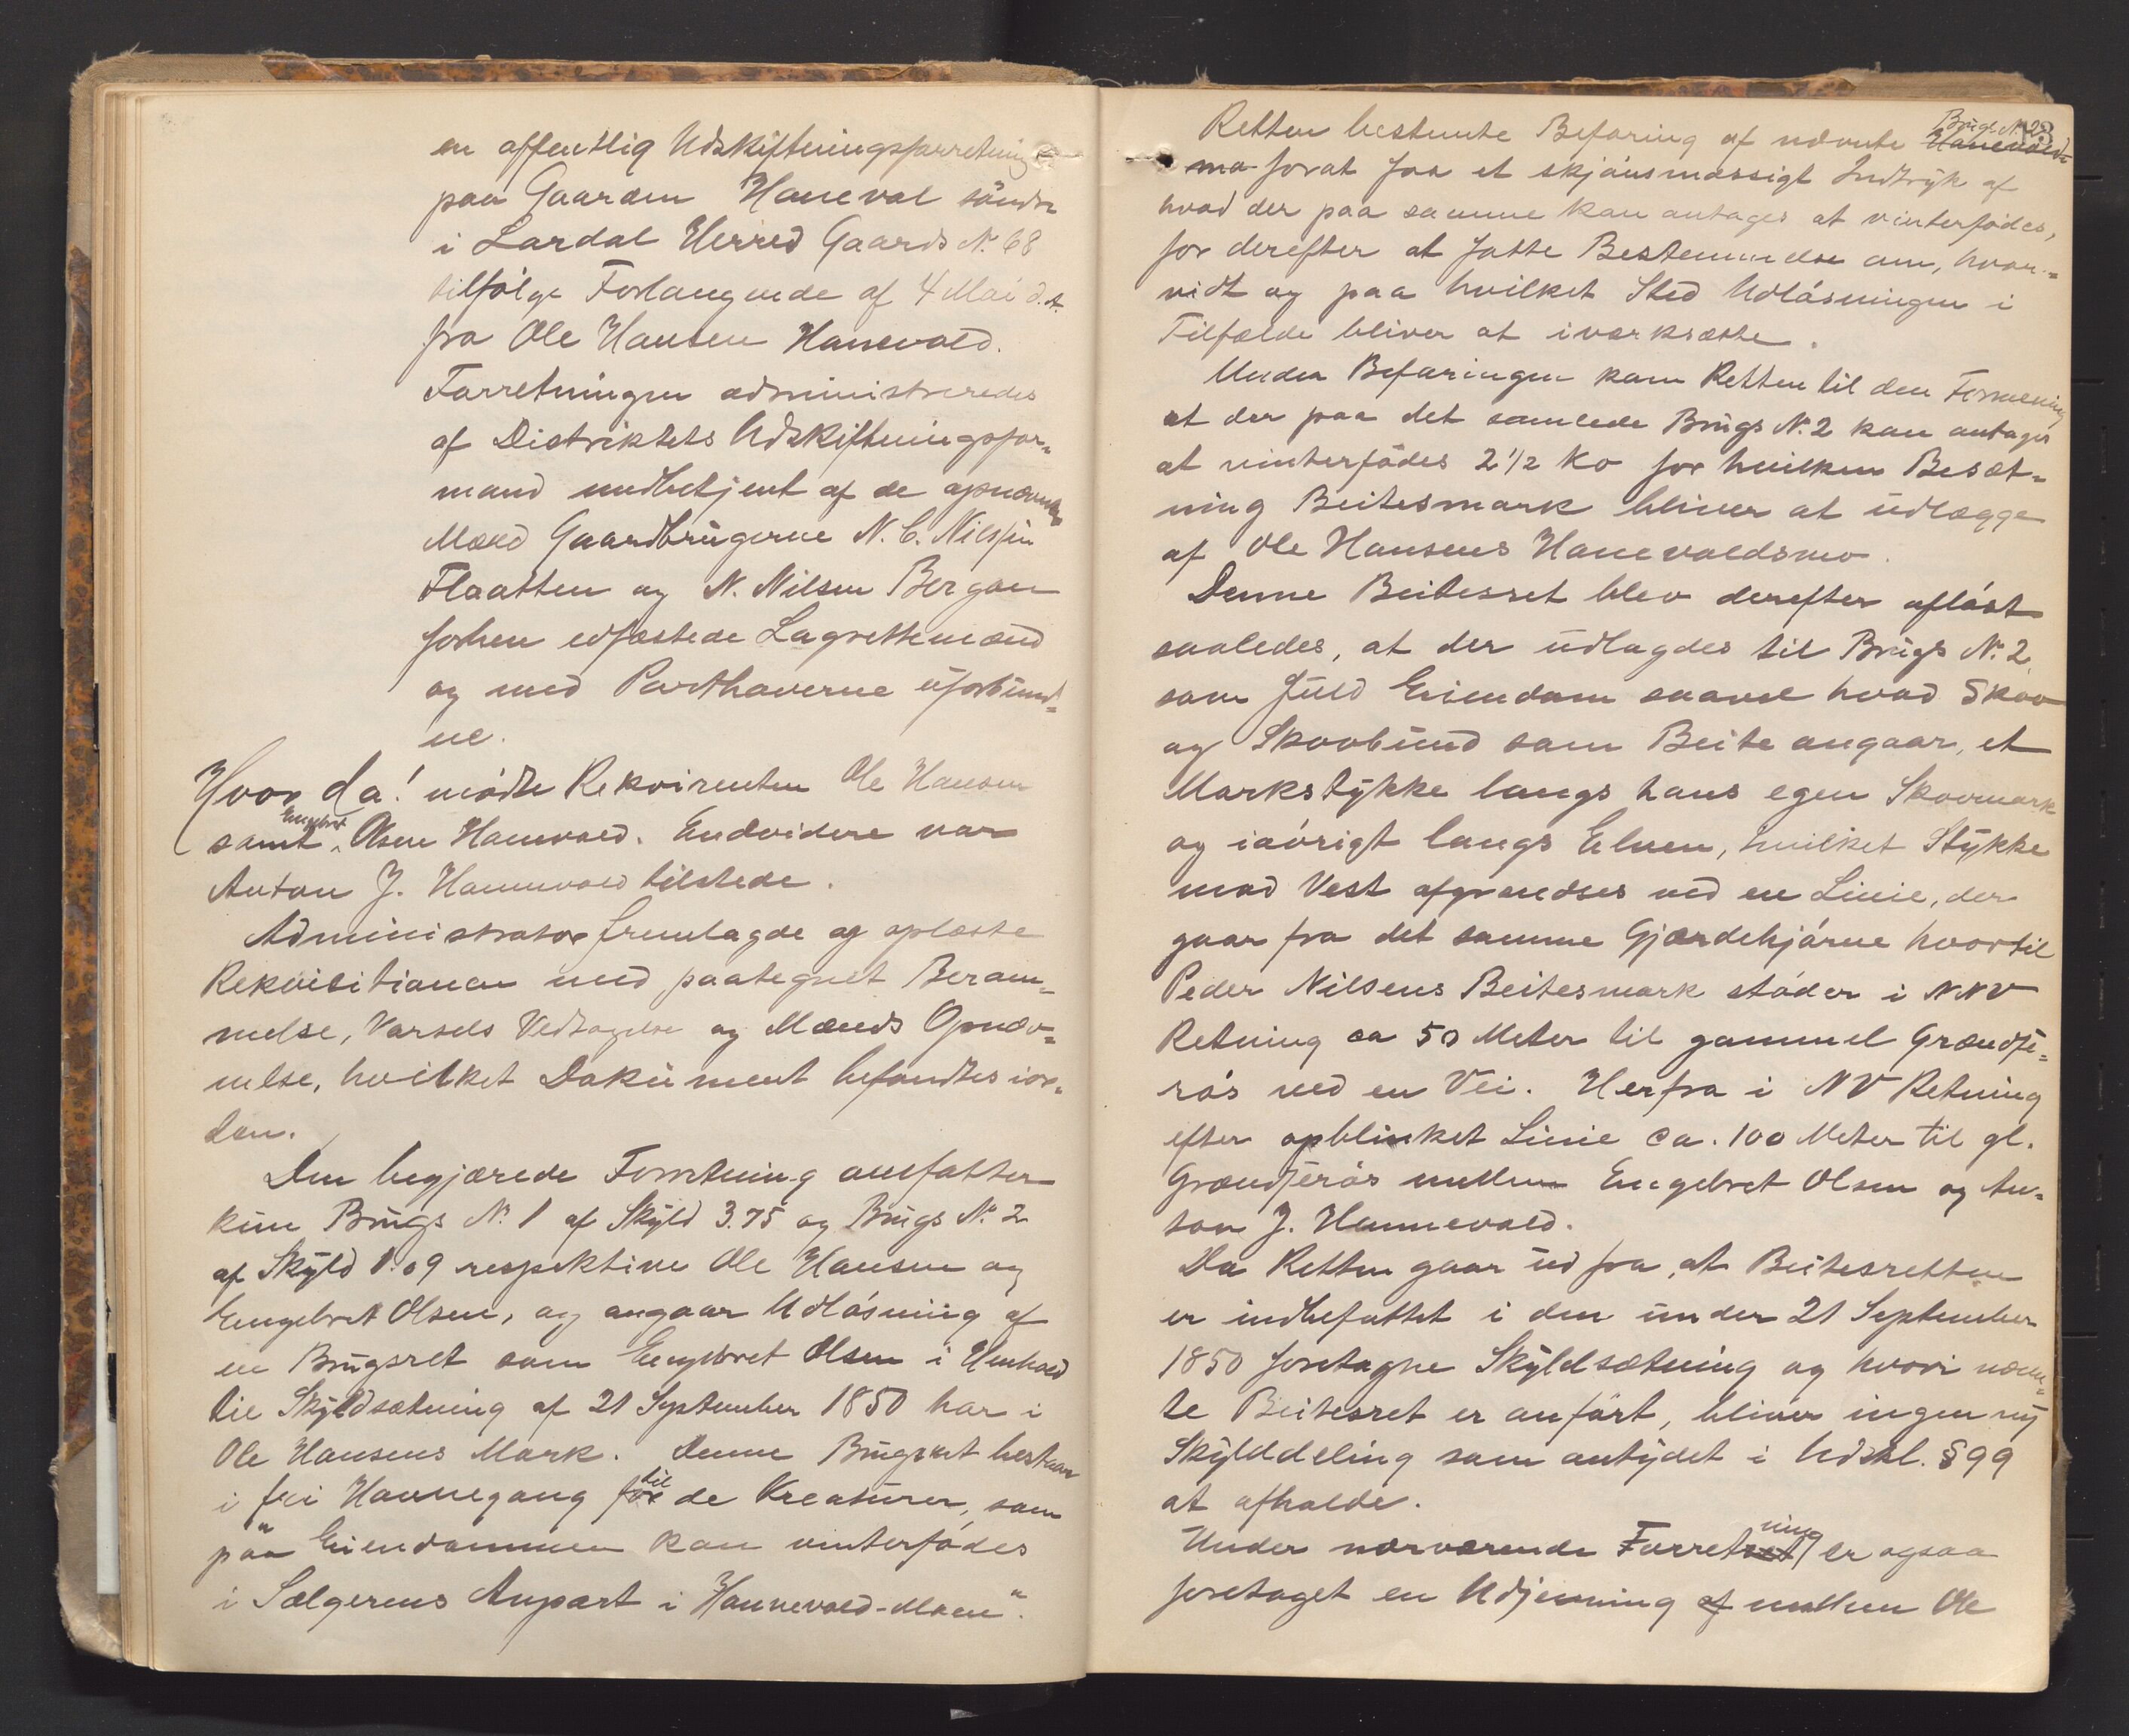 en offentlig Udskiftningsforretning
paa Gaarden Hanevol söndre
i Lardal Herred Gaards N. 68
tilfölge Forlangende af 4 Mai d.A.
fra Ole Hansen Hanevold.
Forretningen administreredes
af Distriktets Udskiftningsfor-
mand medbetjent af de opnævnte
Mænd Gaardbrugerne N. C. Nilssen
Flaatten og N. Nilsen Bergan
forhen edfæstede Lagrettemænd
og med Parthaverne uforbund-
ne.
Hvor da! mödte Rekvirenten Ole Hansen
samt Engebret Olsen Hanevold. Endvidere var
Anton J. Hannevold tilstede.
Administrator fremlagde og oplæste
Rekvisitionen med paategnet Beram-
melse, Varsels Vedtagelse og Mænds Opnæv-
nelse, hvilket Dokument befandtes ior-
den.
Den begjærede Forretning omfatter
kun Brugs N. 1 af Skyld 3.75 og Brugs N. 2
af Skyld 1.09 respektive Ole Hansen og
Engebret Olsen, og angaar Udlösning af
en Brugsret som Engebret Olsen i Henhold
til Skyldsætning af 21 September 1850 har i
Ole Hansens Mark. Denne Brugsret bestaar
i fri Havnegang for til de Kreaturer, som
paa Eiendommen kan vinterfödes
i Sælgerens Anpart i Hannevold-Moen".
Brugs N. 2
Retten bestemte Befaring af nævnte Hanevolds-
mo forat faa et skjönsmæssigt Indtryk af
hvad der paa samme kan antages at vinterfödes,
for derefter at fatte Bestemmelse om, hvor-
vidt og paa hvilket Sted Udlösningen i
Tilfælde bliver at iværksætte.
Under Befaringen kom Retten til den Formening
at der paa det samlede Brugs N. 2 kan antages
at vinterfödes 2 1/2 Ko for hvilken Besæt-
ning Beitesmark bliver at udlægge
af Ole Hansens Hanevoldsmo.
Denne Beitesret blev derefter aflöst
saaledes, at der udlagdes til Brugs N. 2
som fuld Eiendom saavel hvad Skov
og Skovbund som Beite angaar, et
Markstykke langs hans egen Skovmark
og iövrigt langs Elven, hvilket Stykke
mod Vest afgrændses ved en Linie, der
gaar fra det samme Gjærdehjörne hvortil
Peder Nilsens Beitesmark stöder i NNV
Retning ca 50 Meter til gammel Grændse-
rös ved en Vei. Herfra i NV Retning
efter opblinket Linie ca. 100 Meter til gl.
Grændserös mellem Engebret Olsen og An-
ton J. Hannevold.
Da Retten gaar ud fra, at Beitesretten
er indbefattet i den under 21 September
1850 foretagne Skyldsætning og hvori nævn-
te Beitesret er anfört, bliver ingen ny
Skylddeling som antydet i Udskl. § 99
at afholde.
Under nærværende Forretning er ogsaa
foretaget en Udjevning af mellem Ole